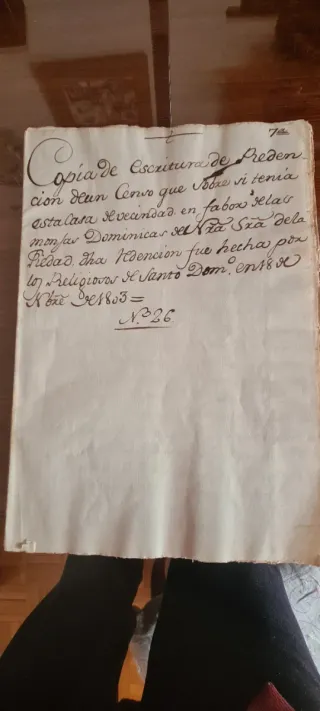 7a
Copia de escritura de Reden-
ción de un Censo que sobre si tenia
esta Casa de vecindad en fabor de las
monjas Dominicas de Nrã Srã de la
Piedad, dha redencion fue hecha por
los Religiosos de Santo Domo. en 18 de
Nbre de 1803=
N.º 26